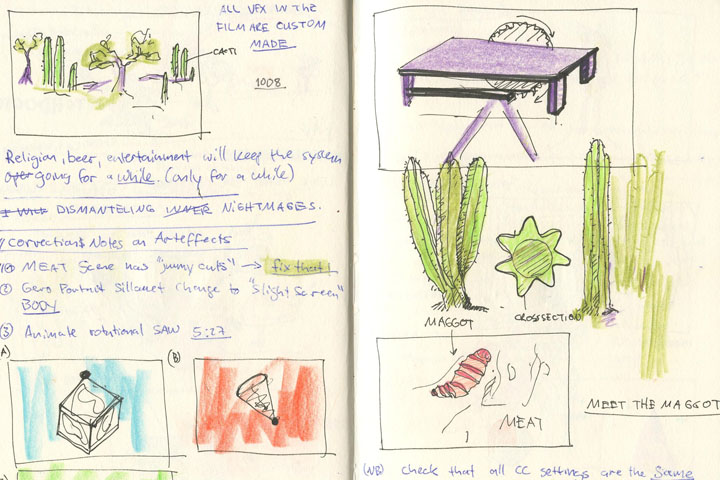 ALL VFX IN THE
FILM ARE CUSTOM
MADE
CACTI
1008
Religion, beer, entertainment will keep the system
oper going for a while. (only for a while)
I WILL DISMANTELING INNER NIGHTMAGES.
CORRECTIONS NOTES ON ARTEFFECTS
MEAT Scene has "jumy cuts" → fix that!
② Gero Portrait Sillouet Change to "slight screen"
BODY
③ Animate rotational SAW 5:27
A)
(B)
MAGGOT
CROSSECTION
MEAT
MEET THE MAGGOT
(NB) Check that all CC settings are the Same